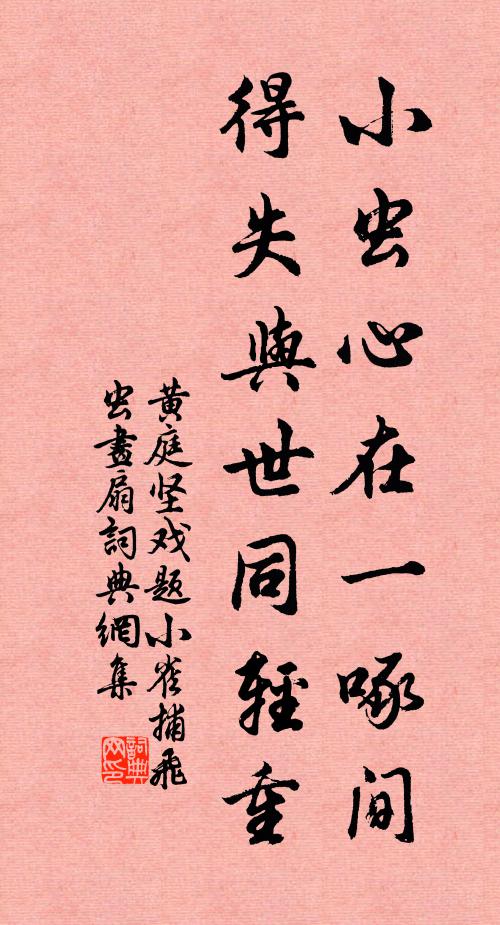 小虫心在一啄间
得失與世同輕重
黄庭坚戏题小雀捕飛
虫畫扇詞典網集
詞典网印